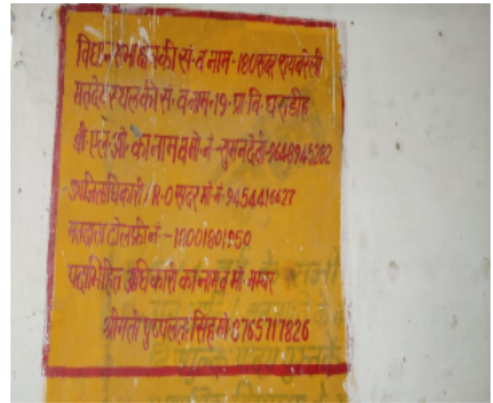 विधान सभा क्षेत्र की सं. व नाम - 180 सदर रायबरेली
मतदेय स्थल की सं. व नाम - 19 - प्रा. वि. घराडीह
बी. एल. ओ. का नाम व मो. नं - सुमन देवी - 9648945282
उपजिलाधिकारी / R-O सदर मो. नं - 9454416627
मतदाता टोल फ्री नं. - 18001801950
पदाभिहित अधिकारी का नाम व मो. नम्बर
श्रीमती पुष्पलता सिंह मो 8765717826